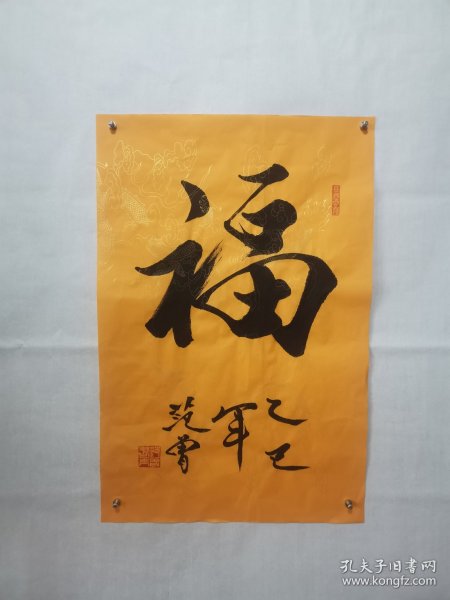 福
乙巳
年
范曾
孔夫子旧书网
www.kongfz.com